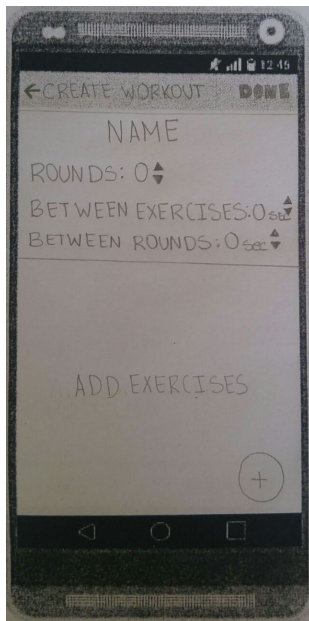 12:45
←CREATE WORKOUT DONE
NAME
ROUNDS: 0
BETWEEN EXERCISES: 0 sec
BETWEEN ROUNDS: 0 sec
ADD EXERCISES
+